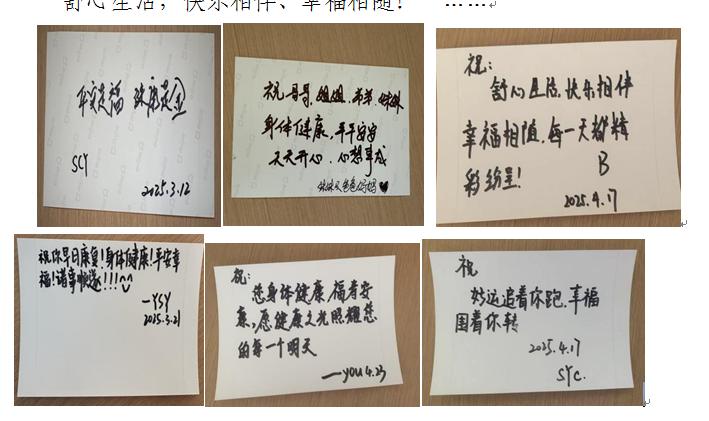 舒心生活，快乐相伴、幸福相随！ ……
平安是福 健康是金
SCY
2025.3.12
祝哥哥、姐姐、弟弟、妹妹
身体健康，平平安安
天天开心，心想事成
妹妹及爸爸妈妈❤
祝：
舒心生活、快乐相伴
幸福相随，每一天都精
彩纷呈！
B
2025.4.17
祝你早日康复！身体健康！平安幸
福！诸事顺遂！！！^^
—YSY
2025.3.21
祝：
您身体健康，福寿安
康，愿健康之光照耀您
的每一个明天
—you 4.23
祝
好运追着你跑，幸福
围着你转
2025.4.17
SYC.